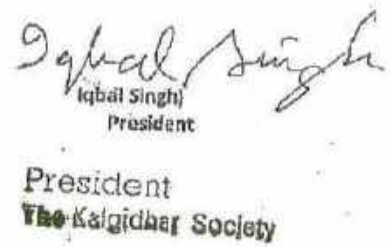 Iqbal Singh
Iqbal Singh)
President
President
The Kalgidhar Society